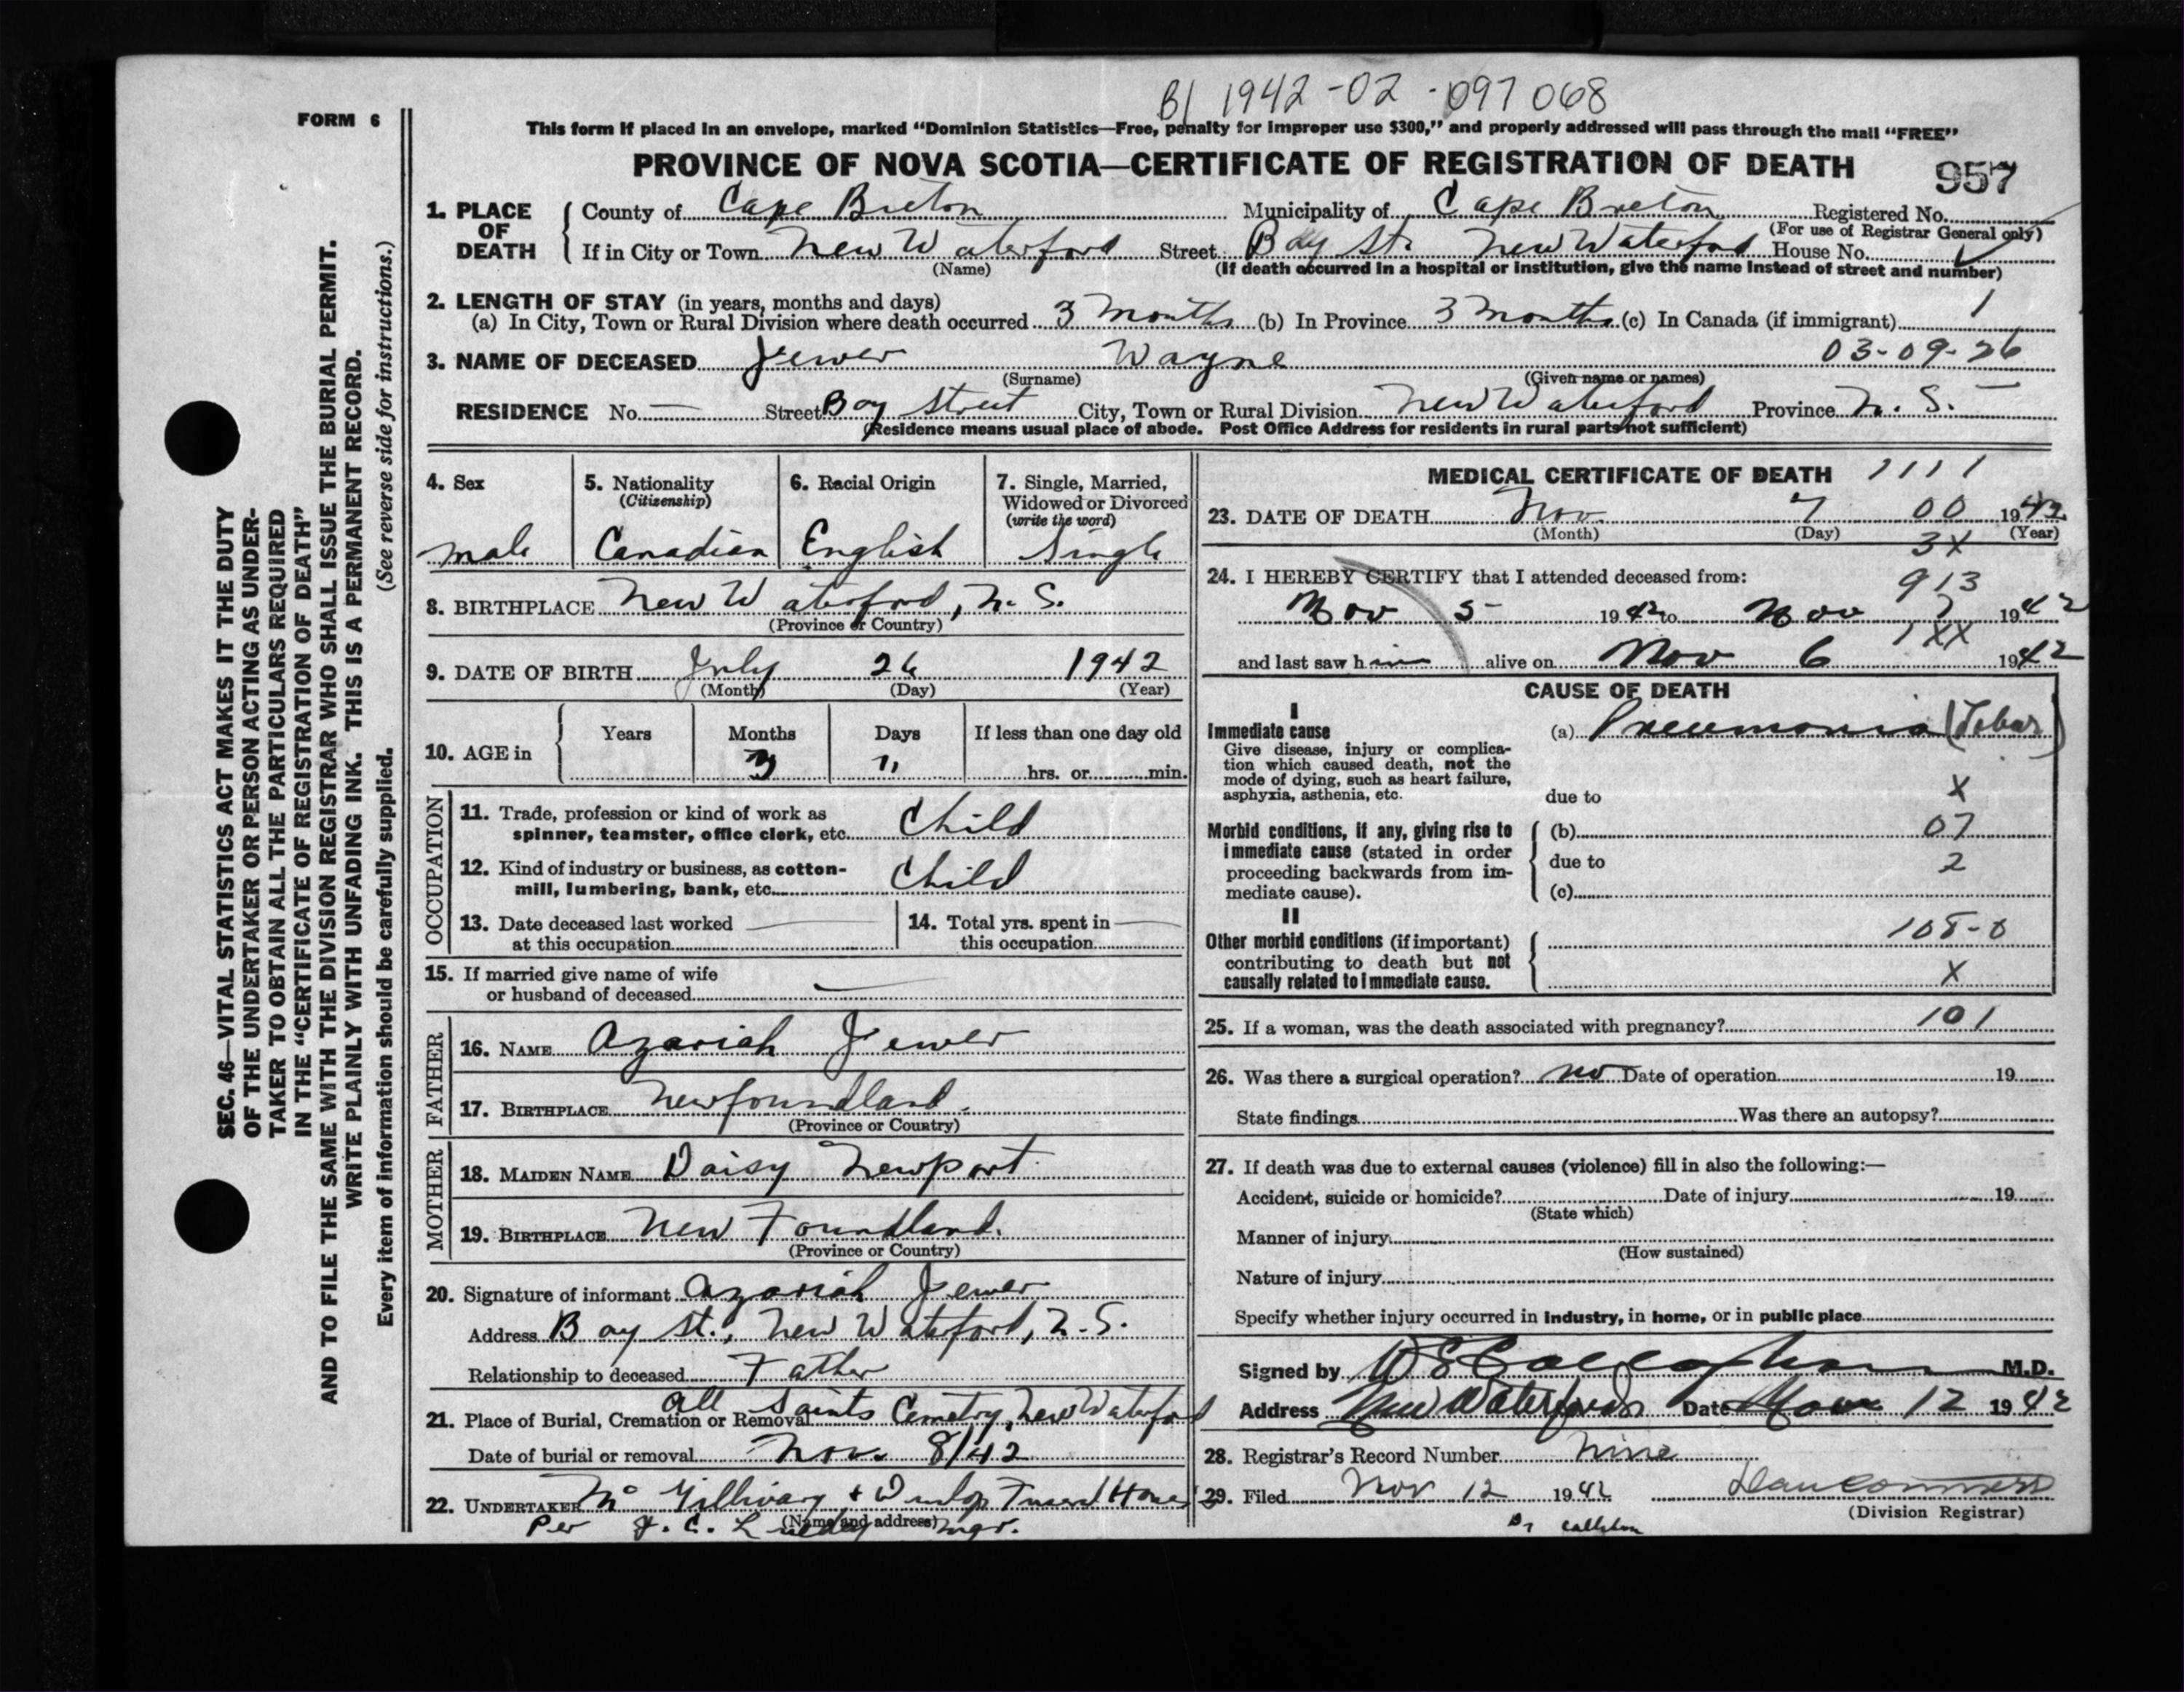 B1 1942-02-097068
FORM 6
This form if placed in an envelope, marked “Dominion Statistics—Free, penalty for improper use $300,” and properly addressed will pass through the mail “FREE”
PROVINCE OF NOVA SCOTIA—CERTIFICATE OF REGISTRATION OF DEATH
957
1. PLACE OF DEATH
County of Cape Breton Municipality of Cape Breton Registered No.
(For use of Registrar General only)
If in City or Town New Waterford Street Bay St. New Waterford House No.
(Name) (If death occurred in a hospital or institution, give the name instead of street and number)
2. LENGTH OF STAY (in years, months and days)
(a) In City, Town or Rural Division where death occurred 3 Months (b) In Province 3 Months (c) In Canada (if immigrant) 1
3. NAME OF DECEASED Jewer Wayne 03-09-26
(Surname) (Given name or names)
RESIDENCE No. — Street Bay Street City, Town or Rural Division New Waterford Province N. S.
(Residence means usual place of abode. Post Office Address for residents in rural parts not sufficient)
4. Sex 5. Nationality (Citizenship) 6. Racial Origin 7. Single, Married, Widowed or Divorced (write the word)
male Canadian English Single
8. BIRTHPLACE New Waterford, N. S.
(Province or Country)
9. DATE OF BIRTH July 26 1942
(Month) (Day) (Year)
10. AGE in Years Months Days If less than one day old
3 11 hrs. or min.
OCCUPATION
11. Trade, profession or kind of work as
spinner, teamster, office clerk, etc. Child
12. Kind of industry or business, as cotton-
mill, lumbering, bank, etc. Child
13. Date deceased last worked
at this occupation
14. Total yrs. spent in
this occupation
15. If married give name of wife
or husband of deceased
FATHER
16. NAME Azariah Jewer
17. BIRTHPLACE Newfoundland.
(Province or Country)
MOTHER
18. MAIDEN NAME Daisy Newport
19. BIRTHPLACE New Foundland.
(Province or Country)
20. Signature of informant Azariah Jewer
Address Bay St., New Waterford, N. S.
Relationship to deceased Father
21. Place of Burial, Cremation or Removal All Saints Cemetry, New Waterford
Date of burial or removal Nov. 8/42
22. UNDERTAKER Mc Gillivary + Dunlop Funeral Home
(Name and address)
Per J. C. mgr.
MEDICAL CERTIFICATE OF DEATH 1111
23. DATE OF DEATH Nov. 7 00 1942
(Month) (Day) (Year)
3X
24. I HEREBY CERTIFY that I attended deceased from:
913
Nov 5 1942 to Nov 7 1942
1XX
and last saw him alive on Nov 6 1942
CAUSE OF DEATH
I
Immediate cause
Give disease, injury or complica-
tion which caused death, not the
mode of dying, such as heart failure,
asphyxia, asthenia, etc.
(a) Pneumonia (Lobar)
X
due to
Morbid conditions, if any, giving rise to
immediate cause (stated in order
proceeding backwards from im-
mediate cause).
(b) 07
due to 2
(c)
II
Other morbid conditions (if important)
contributing to death but not
causally related to immediate cause.
108-0
X
25. If a woman, was the death associated with pregnancy? 101
26. Was there a surgical operation? no Date of operation 19
State findings Was there an autopsy?
27. If death was due to external causes (violence) fill in also the following:—
Accident, suicide or homicide? Date of injury 19
(State which)
Manner of injury
(How sustained)
Nature of injury
Specify whether injury occurred in industry, in home, or in public place
Signed by Callaghan M.D.
Address New Waterford Date Nov 12 1942
28. Registrar's Record Number Nine
29. Filed Nov 12 1942 Dan Conners
(Division Registrar)
Dr
SEC. 46—VITAL STATISTICS ACT MAKES IT THE DUTY
OF THE UNDERTAKER OR PERSON ACTING AS UNDER-
TAKER TO OBTAIN ALL THE PARTICULARS REQUIRED
IN THE “CERTIFICATE OF REGISTRATION OF DEATH”
AND TO FILE THE SAME WITH THE DIVISION REGISTRAR WHO SHALL ISSUE THE BURIAL PERMIT.
WRITE PLAINLY WITH UNFADING INK. THIS IS A PERMANENT RECORD.
Every item of information should be carefully supplied. (See reverse side for instructions.)